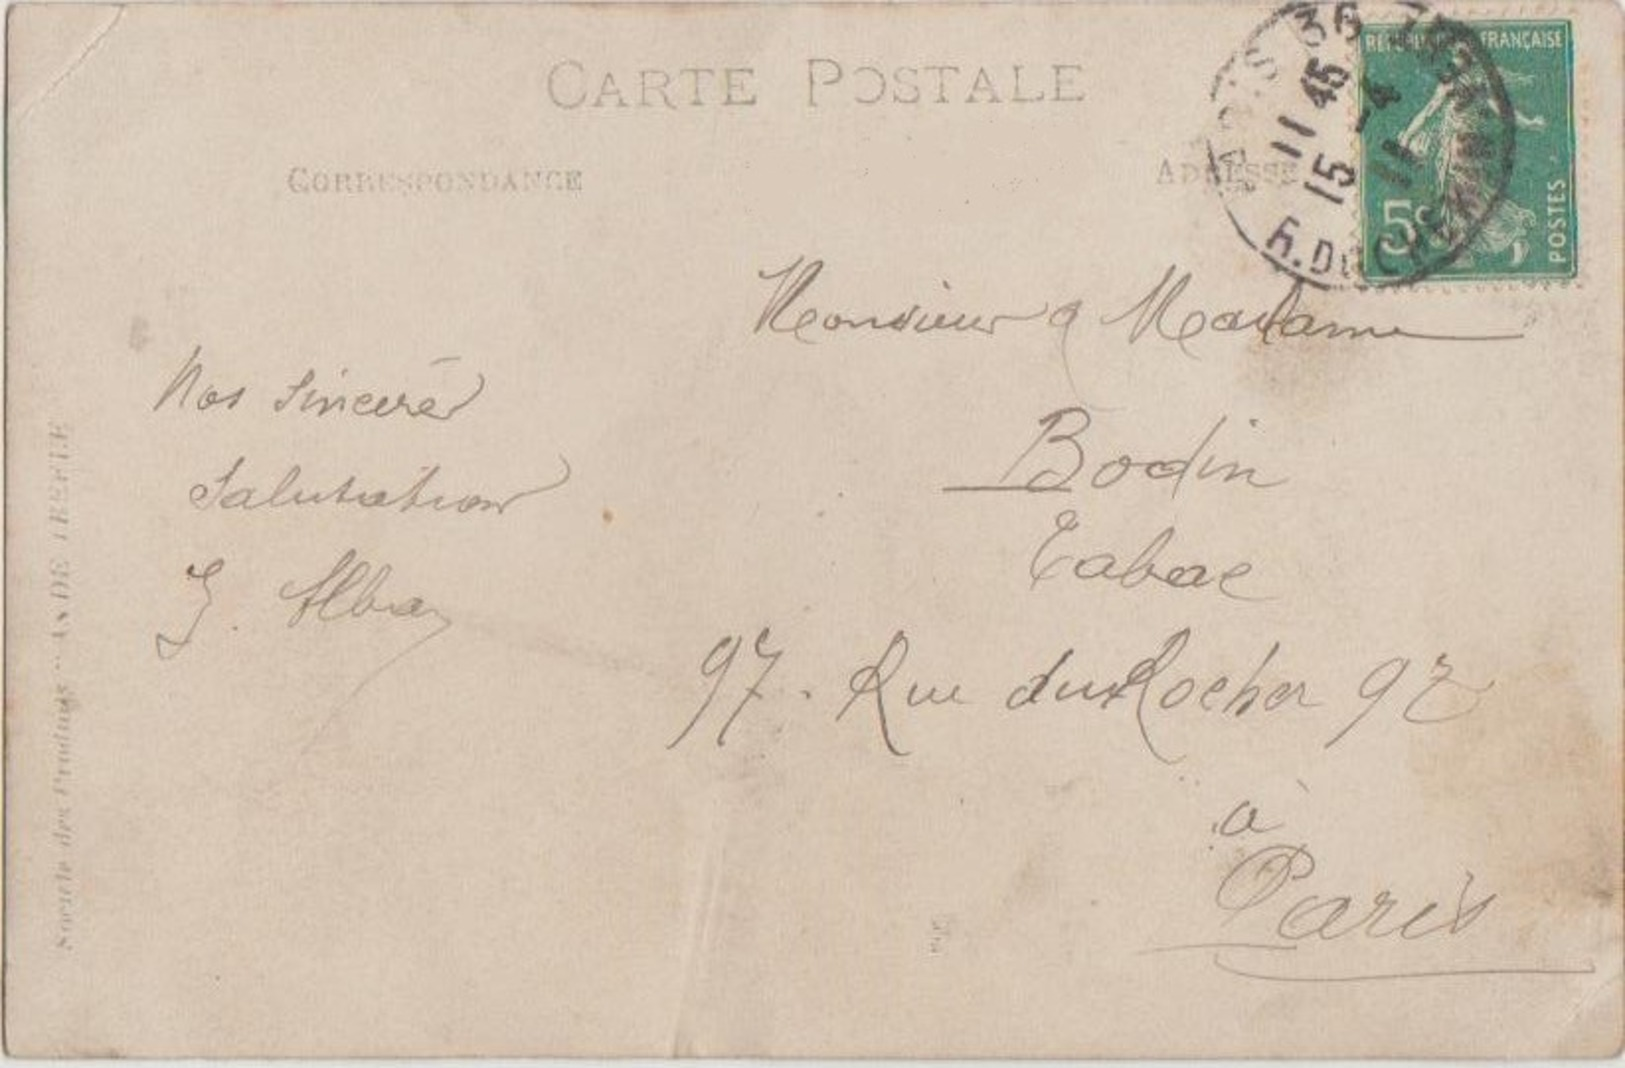 CARTE POSTALE
CORRESPONDANCE
ADRESSE
RÉPUBLIQUE FRANÇAISE
5c
POSTES
PARIS 36
11 45
15 - 4
11
R. DU
Monsieur & Madame
Bodin
Tabac
97. Rue du Rocher 97
à
Paris
Nos sincères
Salutations
Société des Produits "AS DE TREFLE"